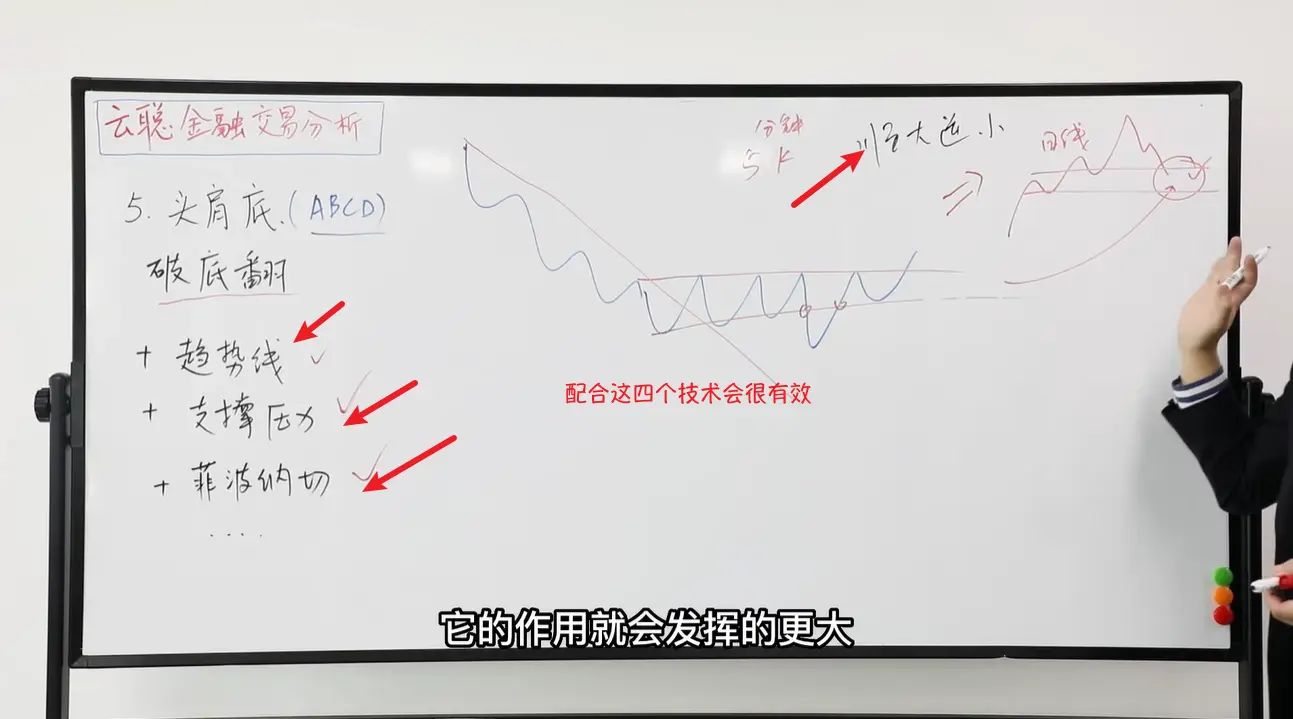 云聪金融交易分析
5. 头肩底.(ABCD)
破底翻
+ 趋势线 ✓
+ 支撑压力 ✓
+ 菲波纳切 ✓
....
分钟
5 K
川全大逆小
日线
配合这四个技术会很有效
它的作用就会发挥的更大